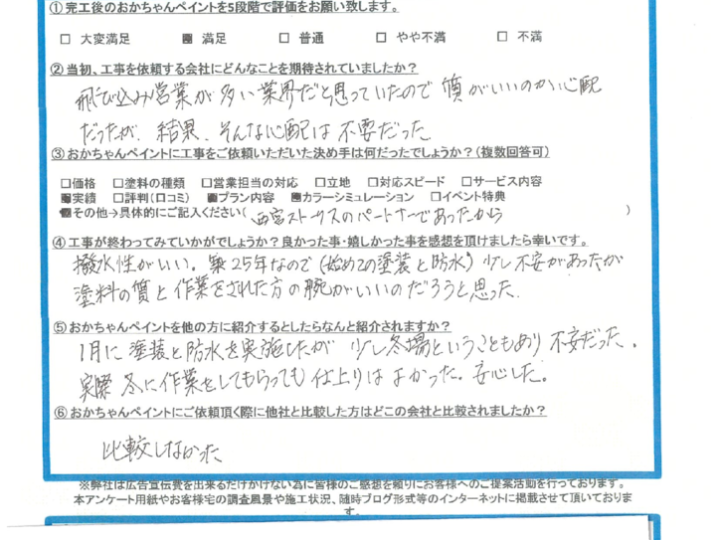 ①完工後のおかちゃんペイントを5段階で評価をお願い致します。
□ 大変満足 ■ 満足 □ 普通 □ やや不満 □ 不満
②当初、工事を依頼する会社にどんなことを期待されていましたか？
飛び込み営業が多い業界だと思っていたので 質がいいのか心配
だったが、結果、そんな心配は不要だった
③おかちゃんペイントに工事をご依頼いただいた決め手は何だったでしょうか？（複数回答可）
□価格 □塗料の種類 □営業担当の対応 □立地 □対応スピード □サービス内容
■実績 □評判（口コミ） ■プラン内容 ■カラーシミュレーション □イベント特典
■その他→具体的にご記入ください（西宮ストークスのパートナーであったから）
④工事が終わってみていかがでしょうか？良かった事・嬉しかった事を感想を頂けましたら幸いです。
撥水性がいい。築25年なので（始めての塗装と防水）少し不安があったが
塗料の質と作業をされた方の腕がいいのだろうと思った。
⑤おかちゃんペイントを他の方に紹介するとしたらなんと紹介されますか？
1月に塗装と防水を実施したが 少し冬場ということもあり不安だった。
実際 冬に作業をしてもらっても仕上りはよかった。安心した。
⑥おかちゃんペイントにご依頼頂く際に他社と比較した方はどこの会社と比較されましたか？
比較しなかった
※弊社は広告宣伝費を出来るだけかけない為に皆様のご感想を頼りにお客様へのご提案活動を行っております。
本アンケート用紙やお客様宅の調査風景や施工状況、随時ブログ形式等のインターネットに掲載させて頂いておりま
す。